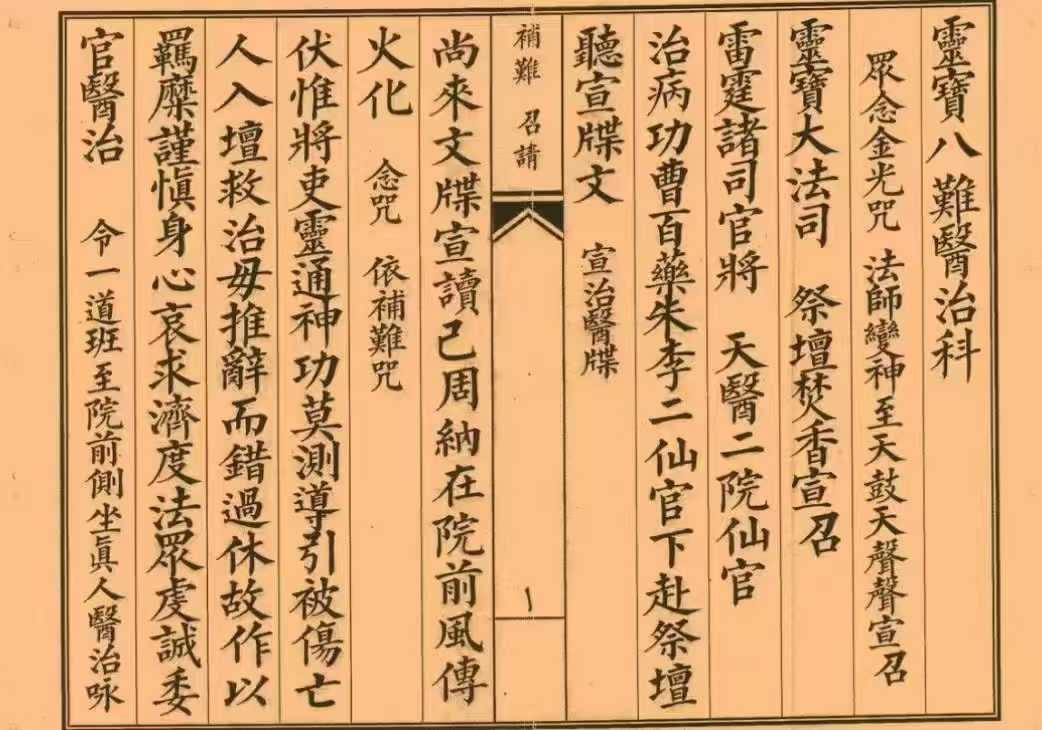 靈寶八難醫治科
眾念金光咒 法師變神至天鼓天聲聲宣召
靈寶大法司 祭壇焚香宣召
雷霆諸司官將 天醫二院仙官
治病功曹百藥朱李二仙官下赴祭壇
聽宣牒文 宣治醫牒
補難 召請
尚來文牒宣讀己周納在院前風傳
火化 念咒 依補難咒
伏惟將吏靈通神功莫測導引被傷亡
人入壇救治毋推辭而錯過休故作以
羈糜謹慎身心哀求濟度法眾虔誠委
官醫治 令一道班至院前側坐眞人醫治咏